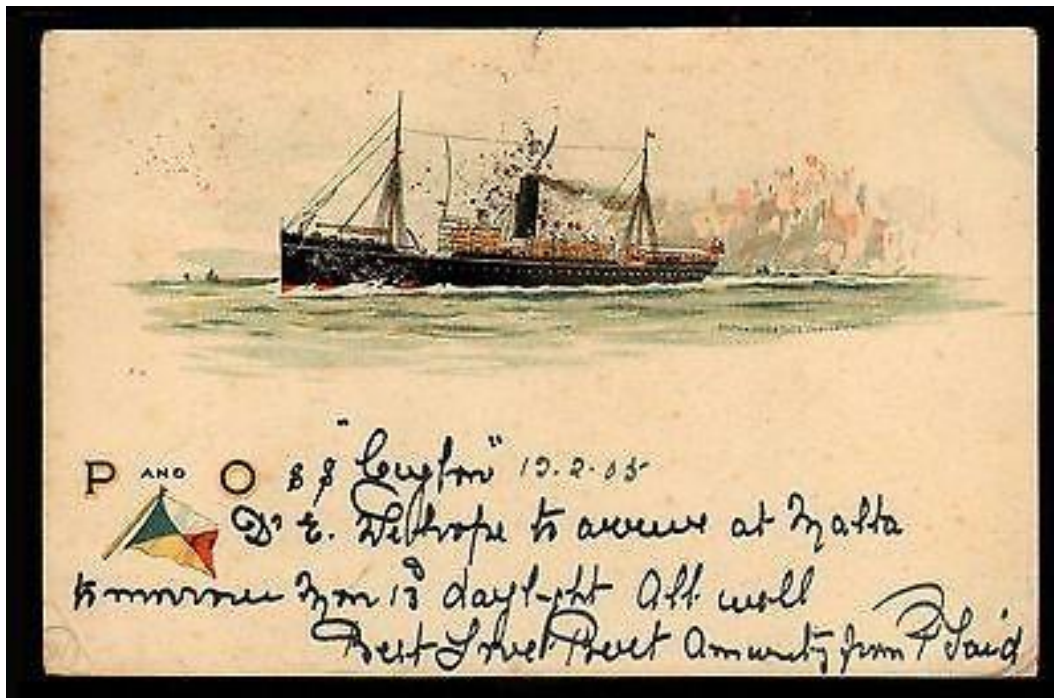 P AND O S S "Ceylon" 12.2.05
Dr E. We hope to arrive at Malta
tomorrow Mon 13 daylight All well
Best Love Bert Am writing from P Said